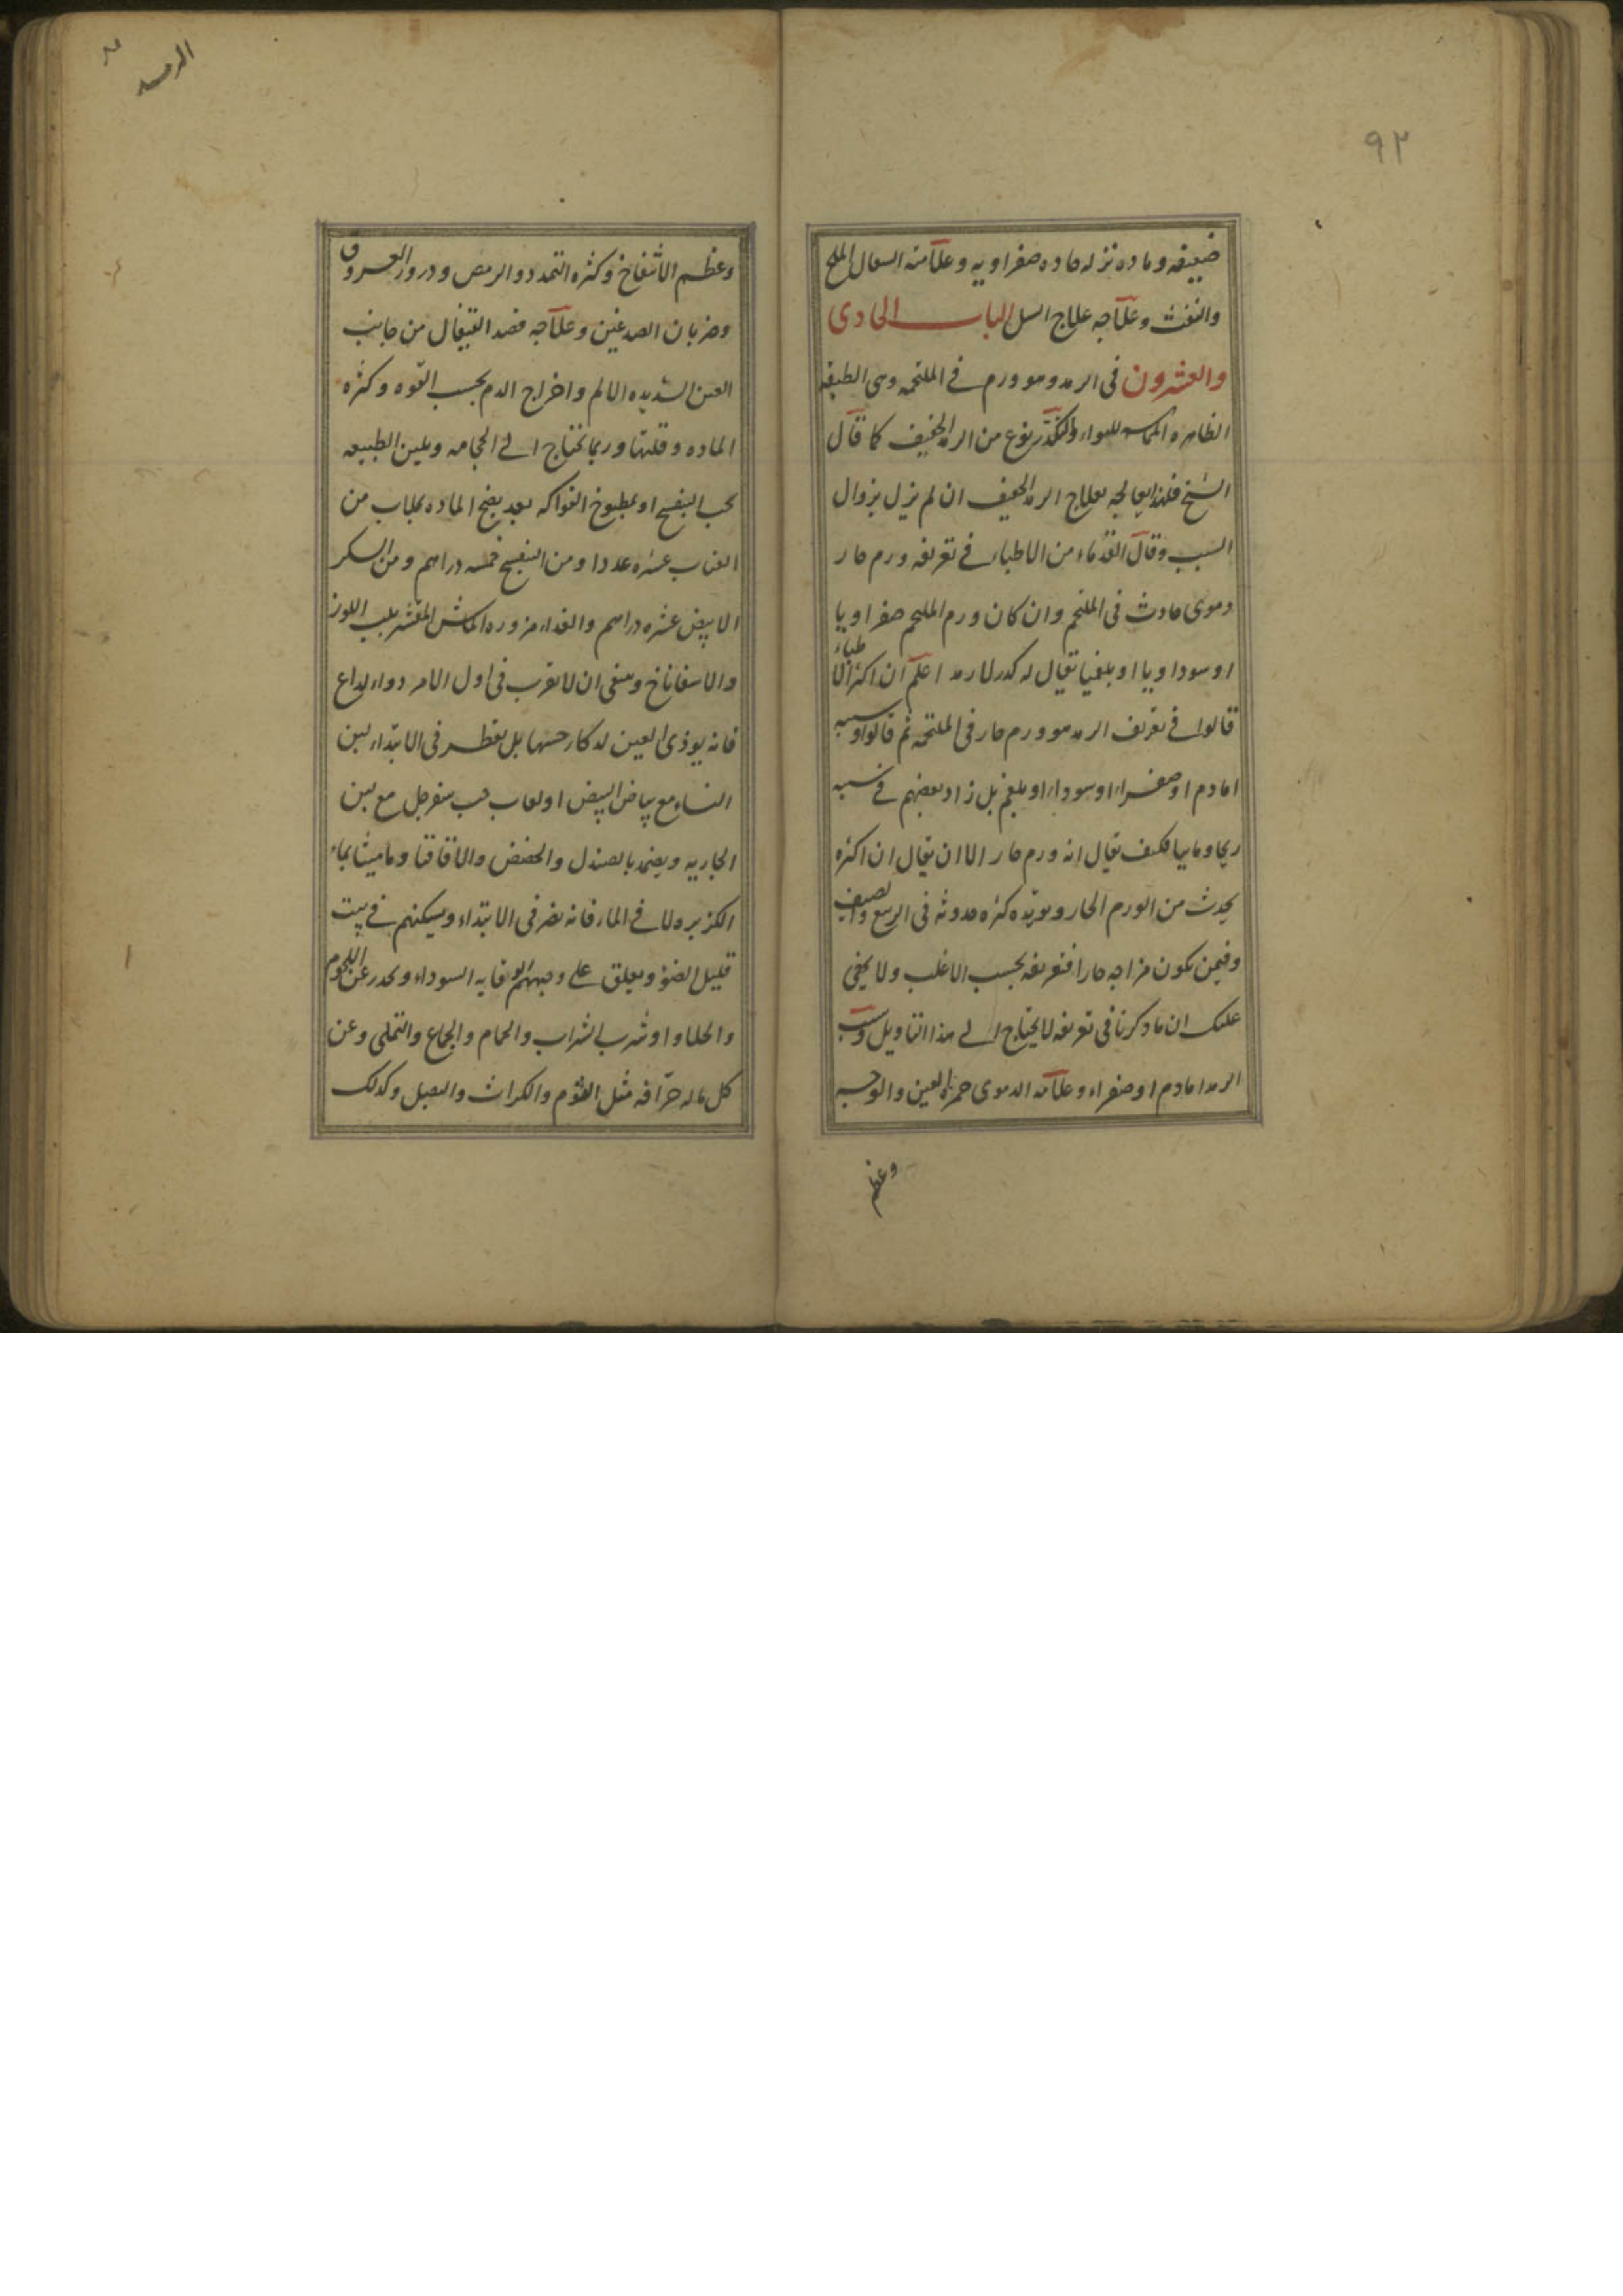 ٩٢
ضيقه وماده نزله حاده صفراويه وعلامته السعال الملح
والنفث وعلاجه علاج السل الباب الحادى
والعشرون فى الرمد وهو ورم فے الملتحمه وهى الطبقه
الظاهره المماسه للهواء والتكدر نوع من الرمد الخفيف كما قال
الشيخ فلهذا يعالجه بعلاج الرمد الخفيف ان لم يزل بزوال
السبب وقال القدماء من الاطباء فے تعريفه ورم حار
دموى حادث فى الملتحم وان كان ورم الملتحم صفراويا
او سوداويا او بلغميا يقال له كدر لا رمد اعلم ان اكثر الاطباء
قالوا فے تعريف الرمد هو ورم حار فى الملتحمه ثم قالوا وسببه
اما دم او صفراء او سوداء او بلغم بل زاد بعضهم فے سببه
ريحا ومائيا فكيف يقال انه ورم حار الا ان يقال ان اكثره
يحدث من الورم الحار ويويده كثره حدوثه فى الربيع والصيف
وفيمن يكون مزاجه حارا فتعريفه بحسب الاغلب ولا يخفى
عليك ان ما ذكرنا فى تعريفه لا يحتاج الے هذا التاويل وسبب
الرمد اما دم او صفراء وعلامه الدموى حمره العين والوجه
وعظم
الرمد
وعظم الانتفاخ وكثره التمدد والرمص ودرور العروق
وضربان الصدغين وعلاجه فصد القيفال من جانب
العين الشديده الالم واخراج الدم بحسب القوه وكثره
الماده وقلتها وربما تحتاج الے الحجامه ويلين الطبيعه
بحب البنفسج او بمطبوخ الفواكه بعد نضج الماده بجلاب من
العناب عشره عددا ومن البنفسج خمسه دراهم ومن السكر
الابيض عشره دراهم والغذاء مزوره الماش المقشر بلب اللوز
والاسفاناخ وينبغى ان لا تقرب فى اول الامر دواء لذاع
فانه يوذى العين لذكاء حسها بل يقطر فى الابتداء لبن
النساء مع بياض البيض او لعاب حب سفرجل مع لبن
الجاريه ويضمد بالصندل والحضض والاقاقيا وماميثا بماء
الكزبره لا فے الماء فانه يضر فى الابتداء ويسكنهم فے بيت
قليل الضوء ويعلق علے وجههم الوقايه السوداء ويحذر عن اللحوم
والحلاوا وشرب الشراب والحمام والجماع والتملى وعن
كل ماله حرّافه مثل الثوم والكراث والبصل وكذلك